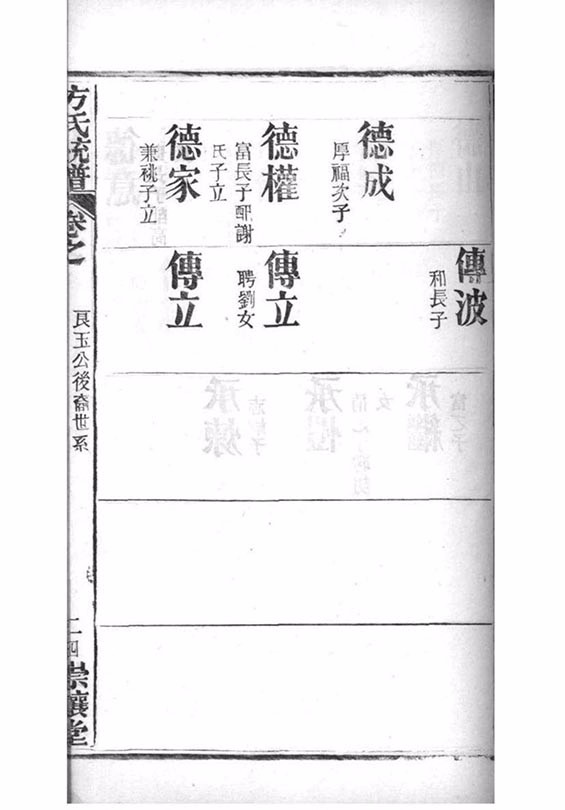 傳波
和長子
德成
厚福次子
德權
富長子配謝
氏子立
傳立
聘劉女
德家
兼祧子立
傳立
方氏統譜
卷之
良玉公後裔世系
二四
崇讓堂